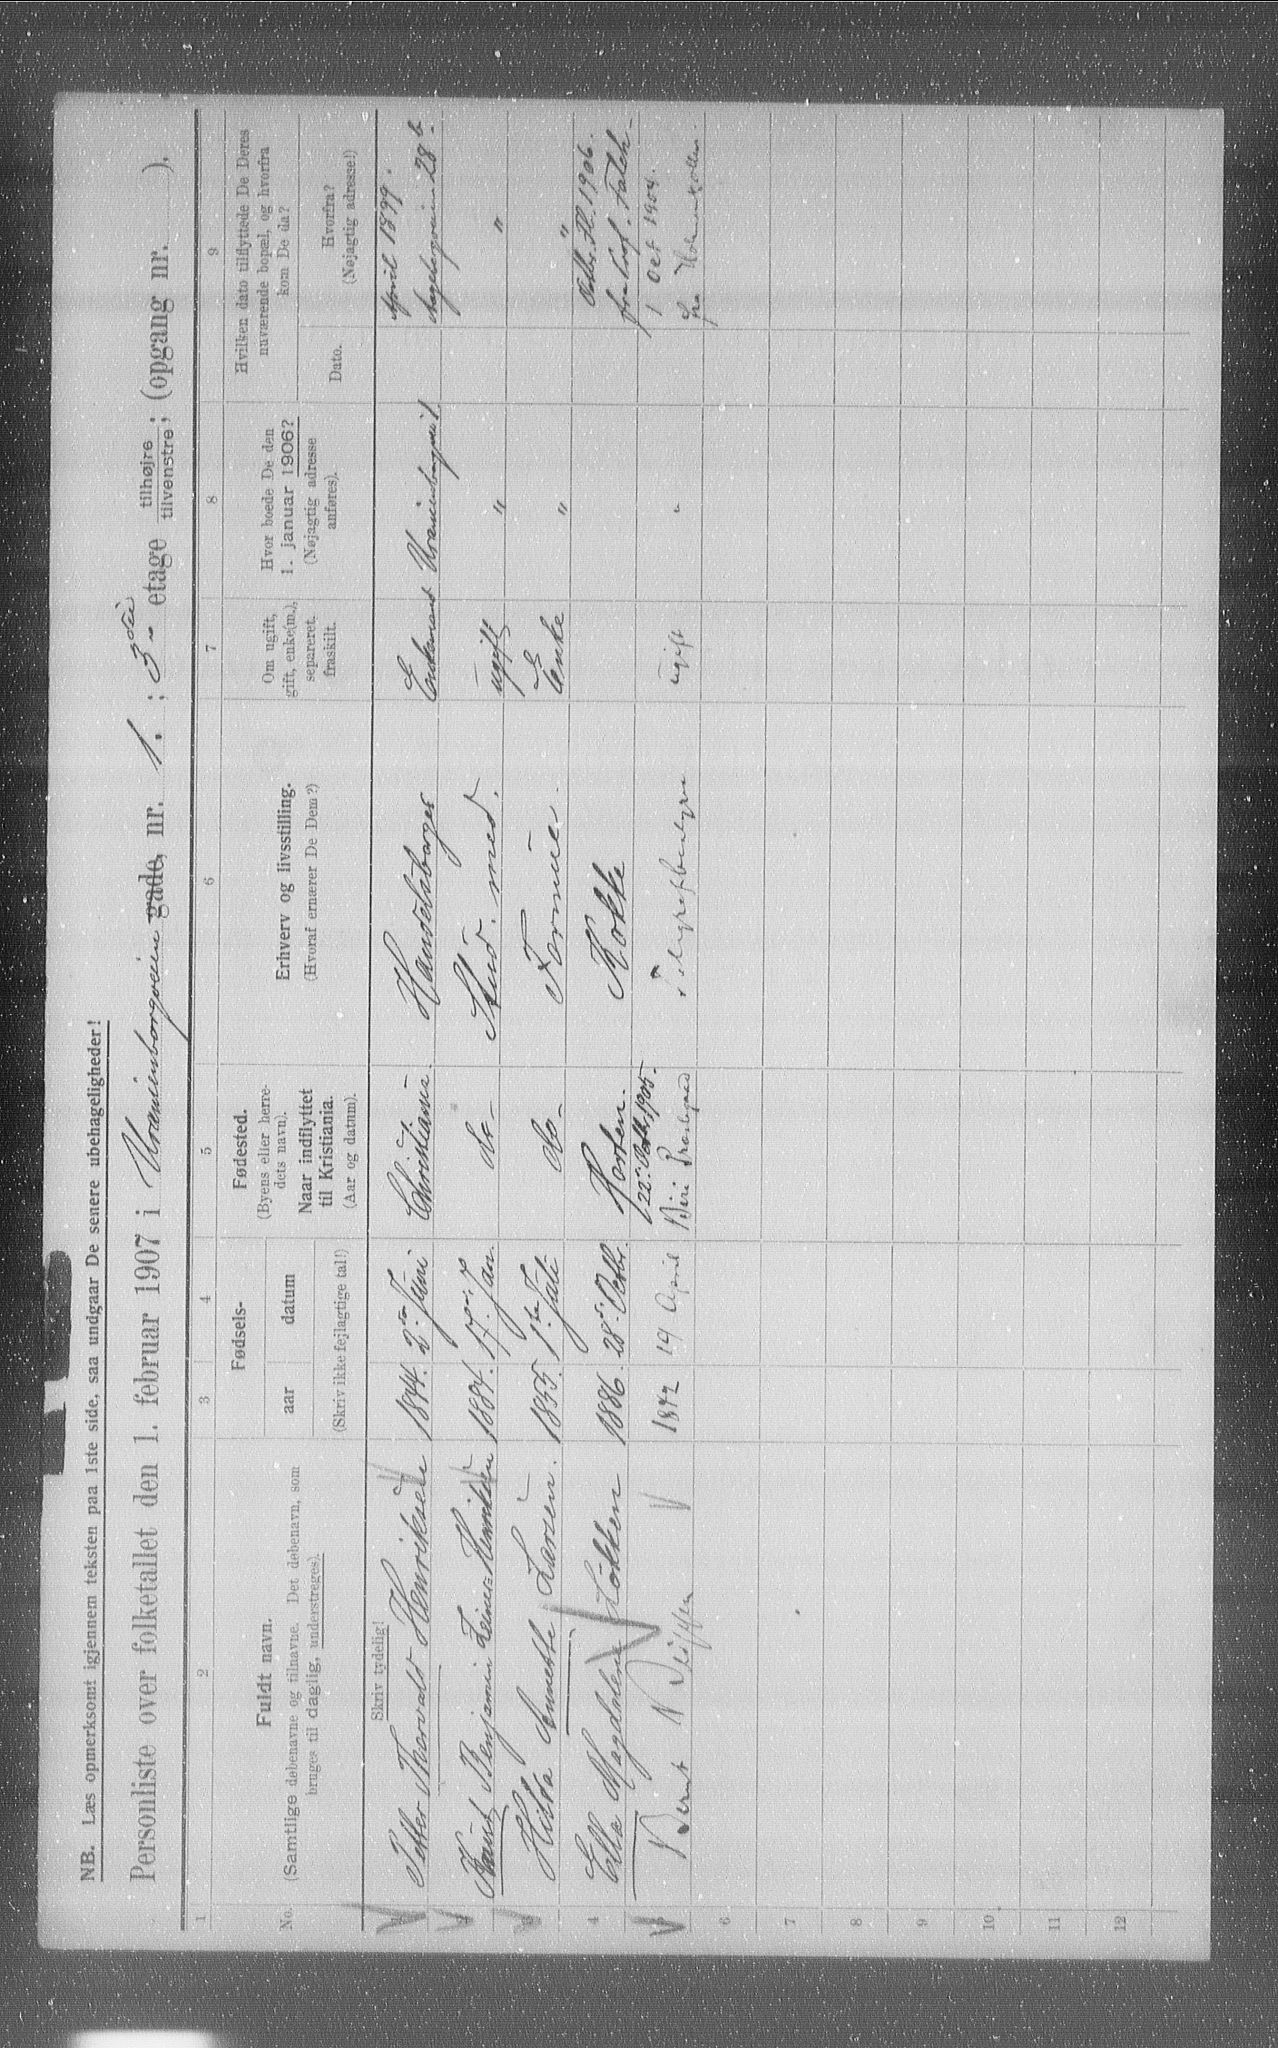 NB. Læs opmerksomt igjennem teksten paa 1ste side, saa undgaar De senere ubehageligheder!
Personliste over folketallet den 1. februar 1907 i Uranienborgveien gade, nr. 1. ; 3die etage tilhøjre tilvenstre; (opgang nr. ).
1 2 3 4 5 6 7 8 9
No.
Fuldt navn.
(Samtlige døbenavne og tilnavne. Det døbenavn, som
bruges til daglig, understreges).
Fødsels-
aar datum
(Skriv ikke fejlagtige tal!)
Fødested.
(Byens eller herre-
dets navn).
Naar indflyttet
til Kristiania.
(Aar og datum).
Erhverv og livsstilling.
(Hvoraf ernærer De Dem?)
Om ugift,
gift, enke(m.),
separeret,
fraskilt.
Hvor boede De den
1. januar 1906?
(Nøjagtig adresse
anføres).
Hvilken dato tilflyttede De Deres
nuværende bopæl, og hvorfra
kom De da?
Dato.
Hvorfra?
(Nøjagtig adresse!)
Skriv tydelig!
1 Petter Thorvald Henriksen 1844. 2den Juni Christiania. Handelsborger Enkemand Uranienborgveien 1. April 1899. 28 b.
2 Knud Benjamin Henriksen 1884. 17. Jan. do- Stud. med. ugift " "
3 Hilda Annette Larsen. 1855. 1ste Juli do- Formue. Enke " "
4 Ella Magdalene Løkken 1886. 28. Octbr. Horten. 22. Octb. 1905. Kokke Octbr. Fl. 1906. fra Prof.
5 Bernt 1872 19 April Biri Præstegaard ugift " 1 Oct 1904. fra Holmenkollen
6
7
8
9
10
11
12